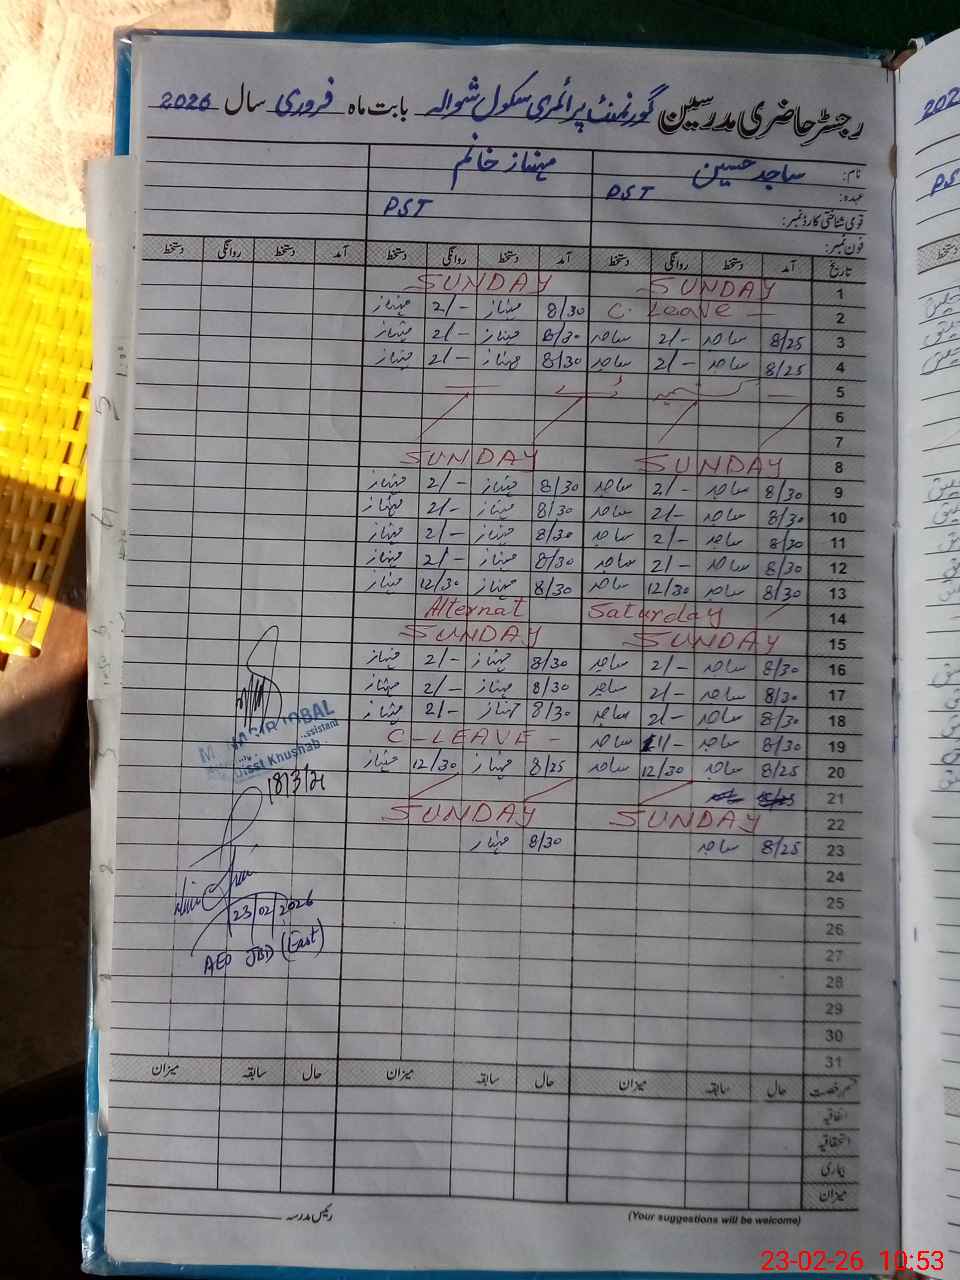 رجسٹر حاضری مدرسین گورنمنٹ پرائمری سکول شوالہ بابت ماہ فروری سال 2026
نام: ساجد حسین مہناز خانم
عہدہ: PST PST
قومی شناختی کارڈ نمبر:
فون نمبر:
تاریخ آمد دستخط روانگی دستخط آمد دستخط روانگی دستخط آمد دستخط روانگی دستخط
1 SUNDAY SUNDAY
2 C. Leave - 8/30 مہناز 2/- مہناز
3 8/25 ساجد 2/- ساجد 8/30 مہناز 2/- مہناز
4 8/25 ساجد 2/- ساجد 8/30 مہناز 2/- مہناز
5
6
7
8 SUNDAY SUNDAY
9 8/30 ساجد 2/- ساجد 8/30 مہناز 2/- مہناز
10 8/30 ساجد 2/- ساجد 8/30 مہناز 2/- مہناز
11 8/30 ساجد 2/- ساجد 8/30 مہناز 2/- مہناز
12 8/30 ساجد 2/- ساجد 8/30 مہناز 2/- مہناز
13 8/30 ساجد 12/30 ساجد 8/30 مہناز 12/30 مہناز
14 Alternat Saturday
15 SUNDAY SUNDAY
16 8/30 ساجد 2/- ساجد 8/30 مہناز 2/- مہناز
17 8/30 ساجد 2/- ساجد 8/30 مہناز 2/- مہناز
18 8/30 ساجد 2/- ساجد 8/30 مہناز 2/- مہناز
19 8/30 ساجد 11/- ساجد C-LEAVE -
20 8/25 ساجد 12/30 ساجد 8/25 مہناز 12/30 مہناز
21
22 SUNDAY SUNDAY
23 8/25 ساجد 8/30 مہناز
24
25
26
27
28
29
30
31
IQBAL
Disst Khushab
18/3/26
23/02/2026
AEO JBD (East)
قسم رخصت حال سابقہ میزان حال سابقہ میزان حال سابقہ میزان
اتفاقیہ
استحقاقیہ
بیماری
میزان
رئیس مدرسہ
(Your suggestions will be welcome)
202
PS
دستخط
23-02-26 10:53